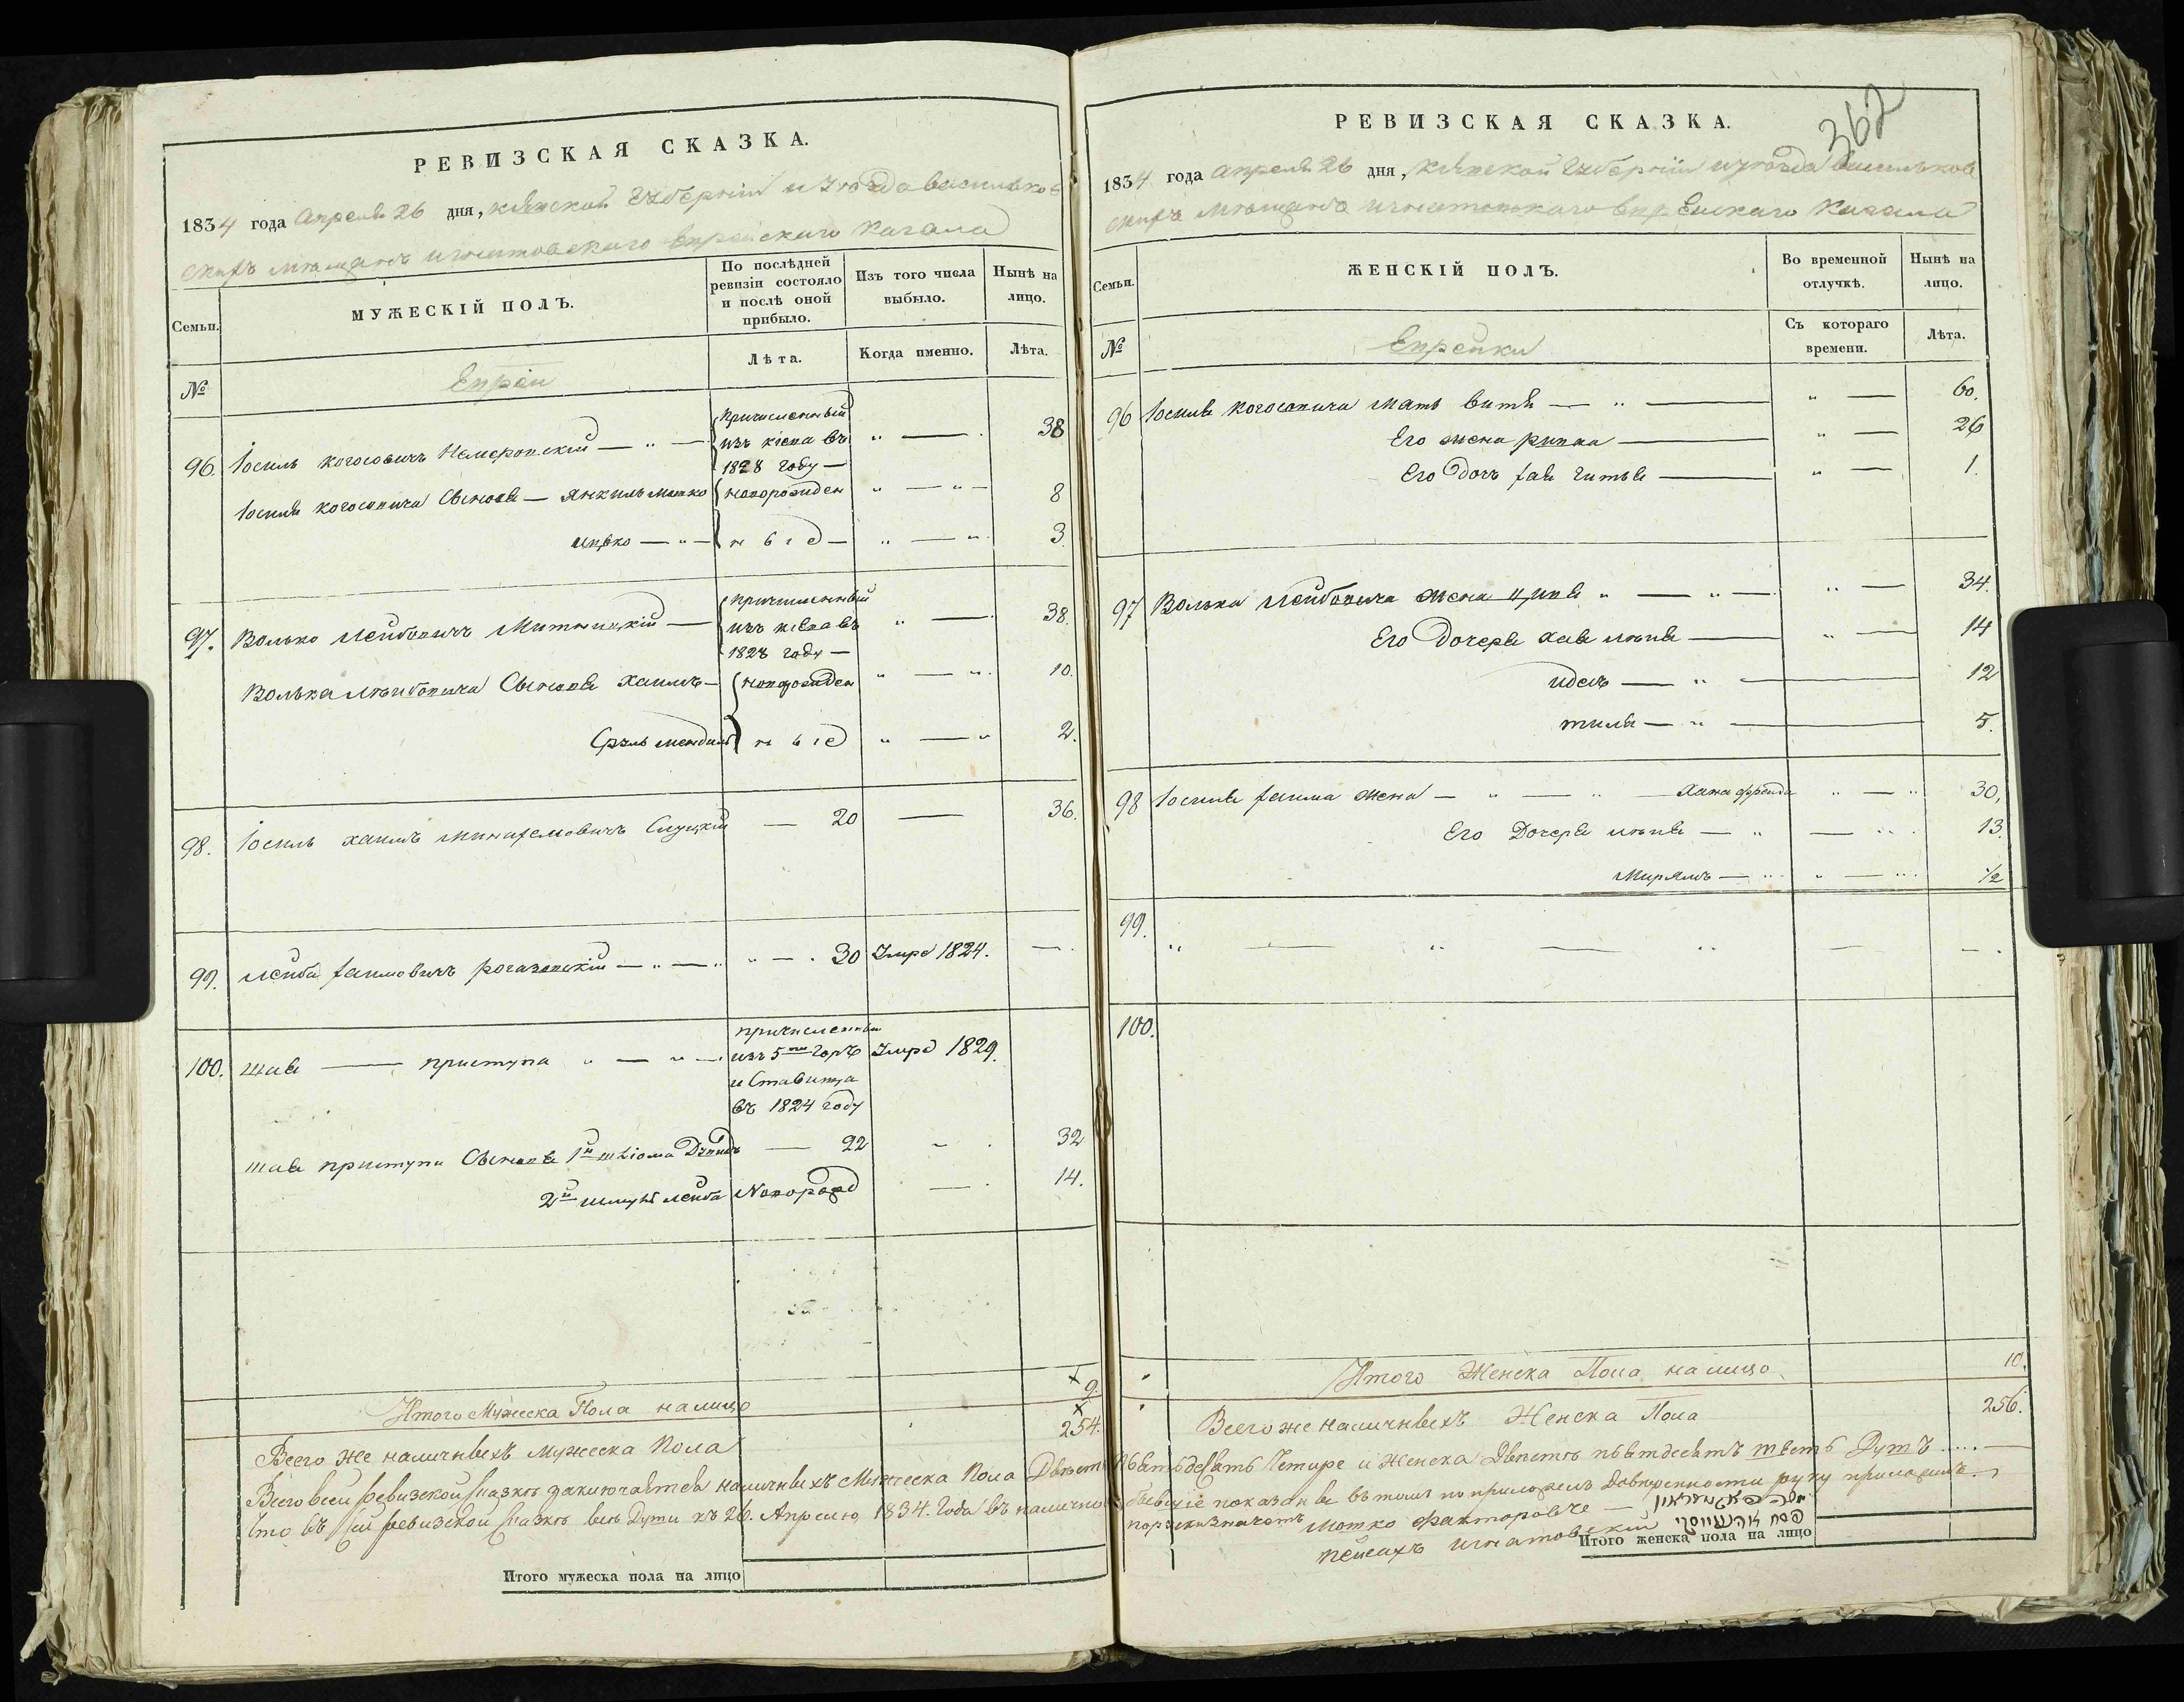 РЕВИЗСКАЯ СКАЗКА.
1834 года Апреля 26 дня, Кіевской Губерніи и уезда васильков
скихъ мещанъ игнатовского Еврейскаго Кагала
Семьи.
МУЖЕСКІЙ ПОЛЪ.
По послѣдней ревизіи состояло и послѣ оной прибыло.
Изъ того числа выбыло.
Нынѣ на лицо.
№
Евреи
Лѣта.
Когда именно.
Лѣта.
96. Іосиль когосовичъ Немеровскій — причисленный изъ кіева въ 1828 году — " — 38
Іосиля когосовича Сыновя — Янкиль Мошко новорожден " — " — 8
ицко — " — " — " 3.
97. Волько Лейбовичъ Митницкій — причисленный изъ кіева въ 1828 году — " — 38.
Волька Лейбовича Сыновя хаимъ — новорожден " — " 10.
Сруль мендиль " — " 2.
98. Іосиль хаимъ Минахемовичъ Слуцкій — 20 — 36.
99. Лейба хаимовичъ рогазовскій — " — " " — . 30 Умре 1824. — .
100. шая — приступа " — " — причисленный изъ 5 Умре 1829.
и Ставища
въ 1824 году
шая приступи Сыновя 1й шліома Дувидъ — 22 — 32
2й шмуль лейба Новорожд — . 14.
Итого Мужеска Пола налицо 9.
Всего же наличныхъ мужеска Пола 254.
Всего всей ревизской сказки заключается наличныхъ Мужеска Пола Двести
Что въ сей ревизской сказки все Души къ 26. Апрелю 1834. Года въ налично
Итого мужеска пола на лицо
362
РЕВИЗСКАЯ СКАЗКА.
1834 года апреля 26 дня, Кіевской Губерніи и уезда васильков
скихъ мещанъ игнатовскаго Еврейскаго Кагала
Семьи.
ЖЕНСКІЙ ПОЛЪ.
Во временной отлучкѣ.
Нынѣ на лицо.
№
Еврейки
Съ котораго времени.
Лѣта.
96 Іосиля когосовича мать витя — " — " — 60.
Его жена ривка — " — 26
Его дочъ хая гитля — " — 1.
97 Волька Лейбовича жена ципя " — " — " — 34.
Его дочеря хая — " — 14
идесъ — " — 12
тиля — " — 5.
98 Іосиля хаима жена — " — " — Хана фрейда " — " 30,
Его Дочеря — " — " . 13.
Мирямъ — " " — " 1/2
99. " — " — " — — .
100.
Итого Женска Пола налицо 10.
Всего же наличныхъ Женска Пола 256.
пятьдесять Четире и Женска Двести пятдесятъ шесть Душъ ..... —
бывшіе показаны въ томъ по приложенъ Доверенности руку приложилъ.
Мотко факторовіче —
пейсахъ игнатовскій פסח
Итого женска пола на лицо